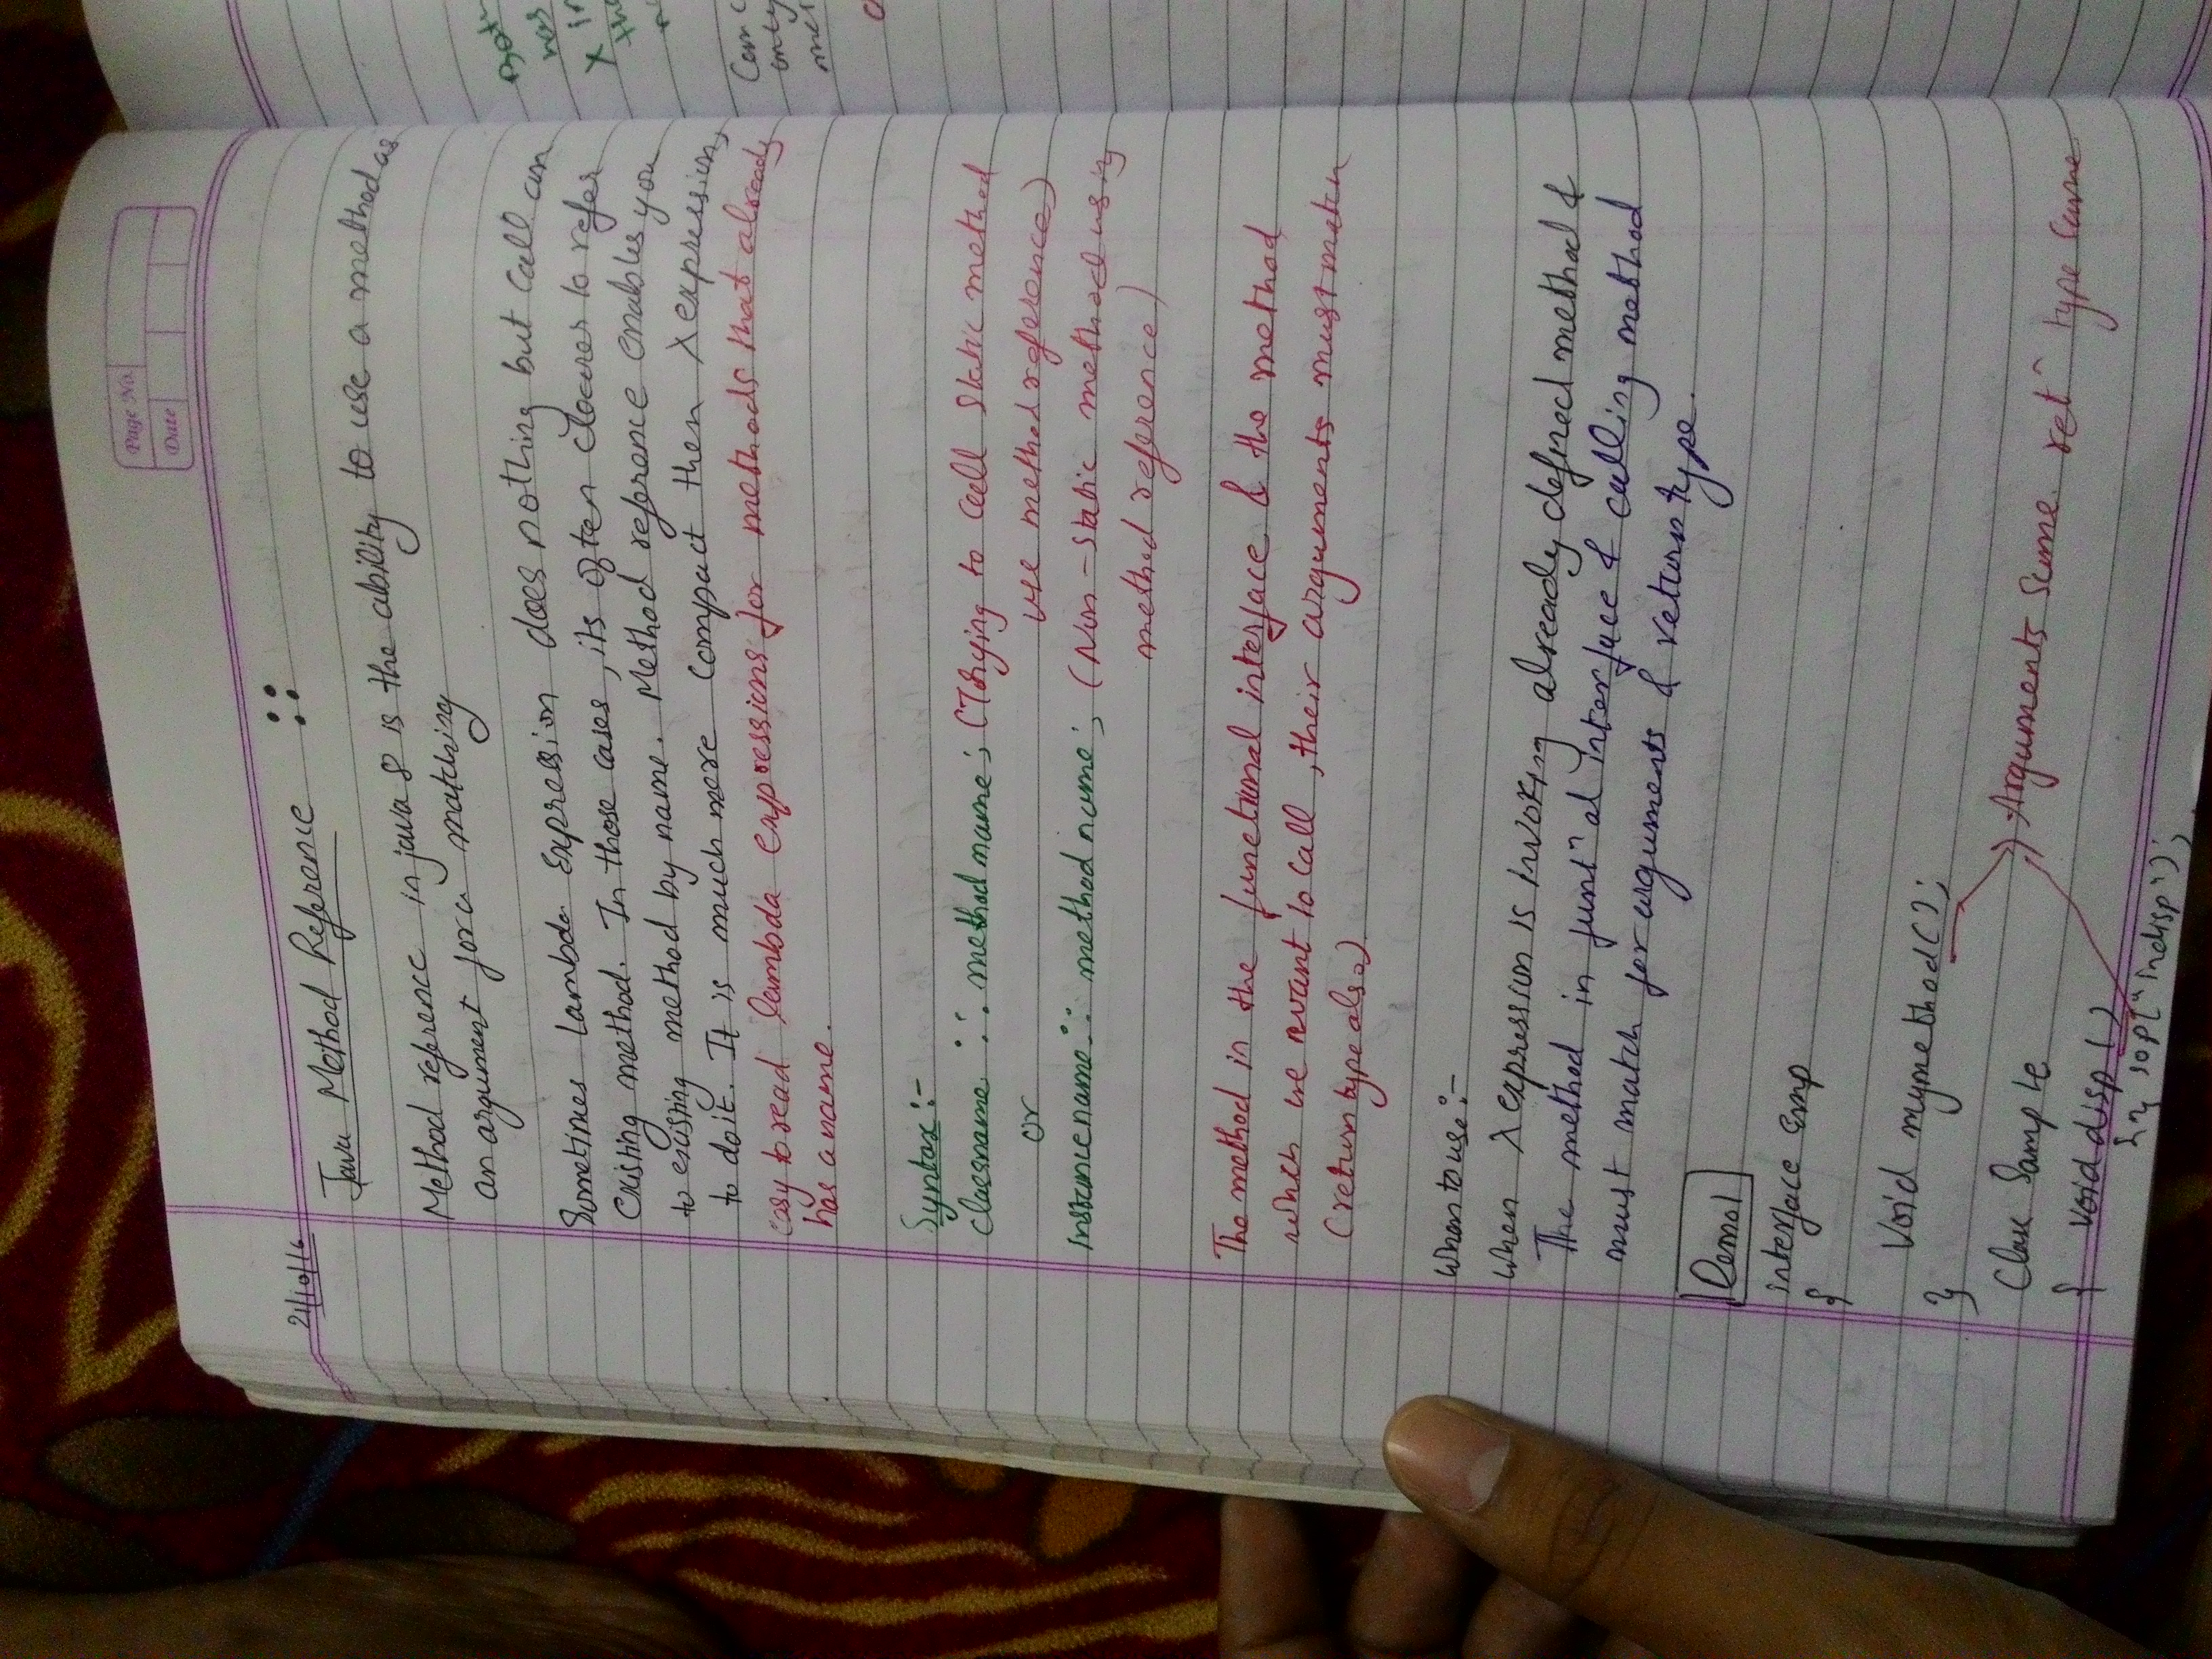 Page No.
Date
21/10/16
Java Method Reference ::
Method reference in java 8 is the ability to use a method as
an argument for a matching
Sometimes lambda expression does nothing but call an
existing method. In those cases, its often clearer to refer
to existing method by name. Method reference enables you
to do it. It is much more compact then λ expression,
easy to read lambda expressions for methods that already
has a name.
Syntax :-
classname :: method name; (Trying to call static method
or
use method reference)
instance name :: method name; (Non-static method using
method reference)
The method in the functional interface & the method
which we want to call, their arguments must match
(return type also)
When to use :-
When λ expression is invoking already defined method &
The method in funtⁿal interface & calling method
must match for arguments & return type.
Demo1
interface Emp
{
Void mymethod();
}
Class Sample
Arguments Same ret^ type same
{ void disp()
{ sop("indisp");